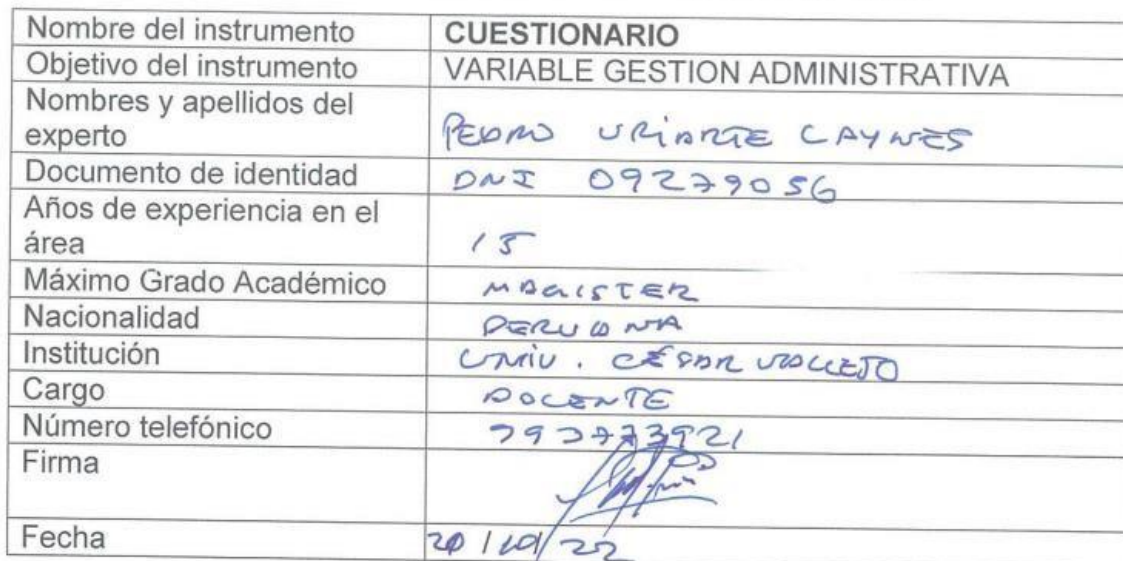 Nombre del instrumento CUESTIONARIO
Objetivo del instrumento VARIABLE GESTION ADMINISTRATIVA
Nombres y apellidos del
experto PEDRO URIARTE LAYNES
Documento de identidad DNI 09279056
Años de experiencia en el
área 15
Máximo Grado Académico MAGISTER
Nacionalidad PERUANA
Institución UNIV. CÉSAR VALLEJO
Cargo DOCENTE
Número telefónico
Firma
Fecha